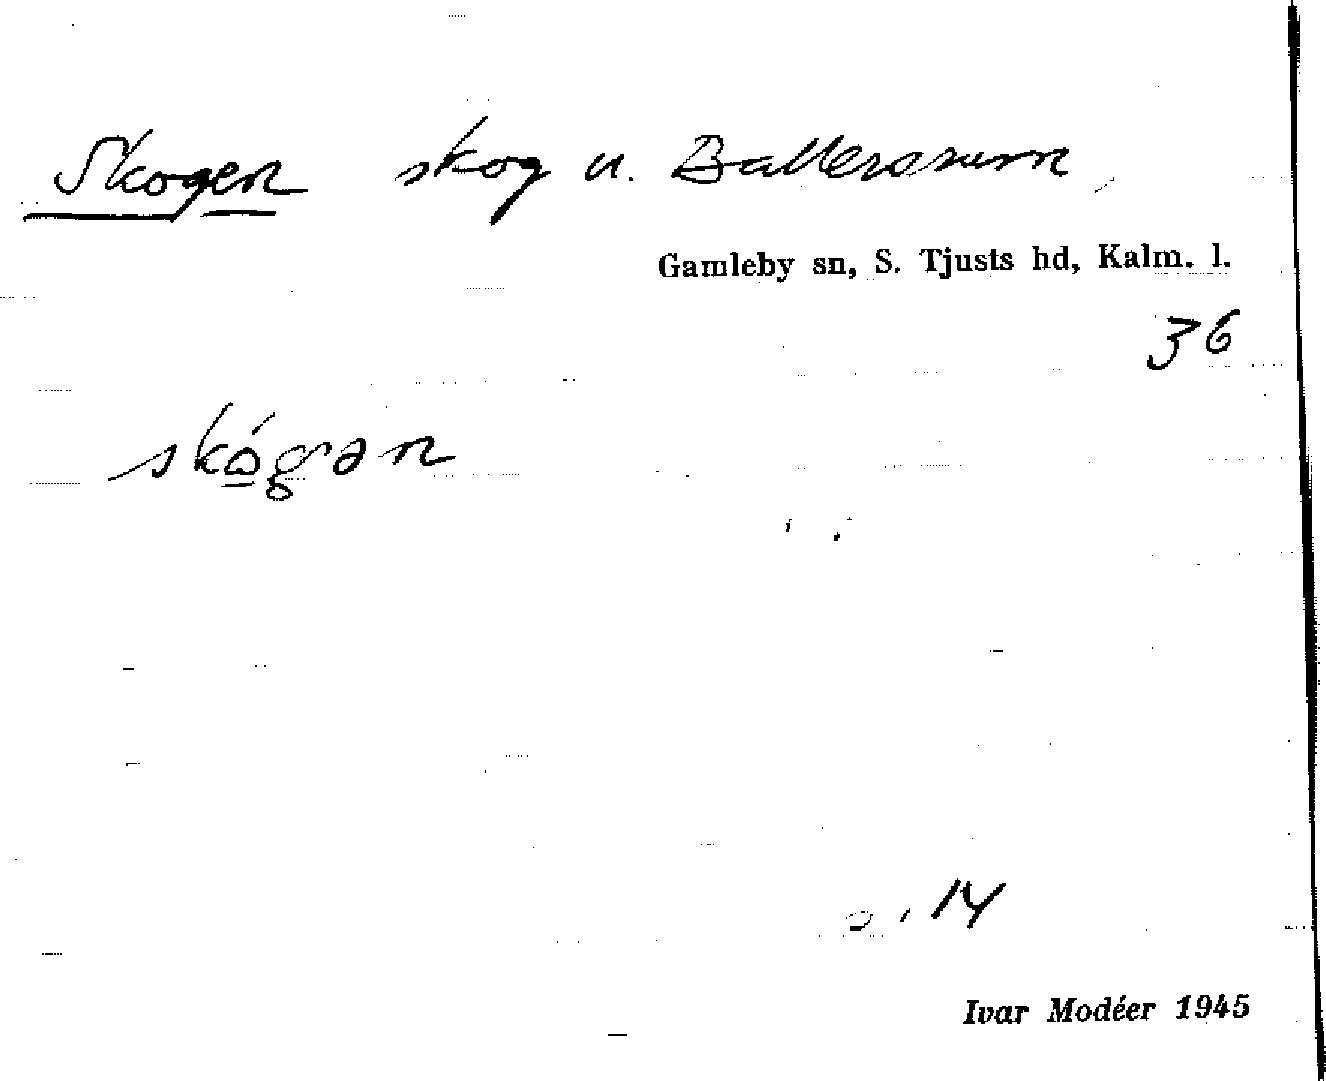 Skogen skog u. Ballersrum,
Gamleby sn, S. Tjusts hd, Kalm. l.
36
skógən
14
Ivar Modéer 1945